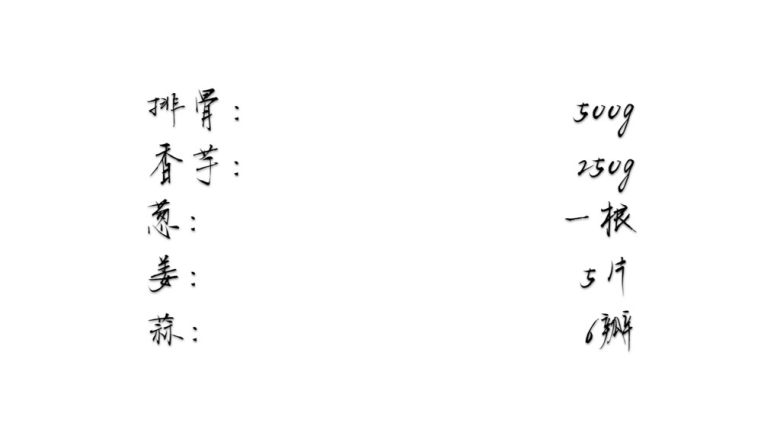 排骨： 500g
香芋： 250g
葱： 一根
姜： 5片
蒜： 6瓣